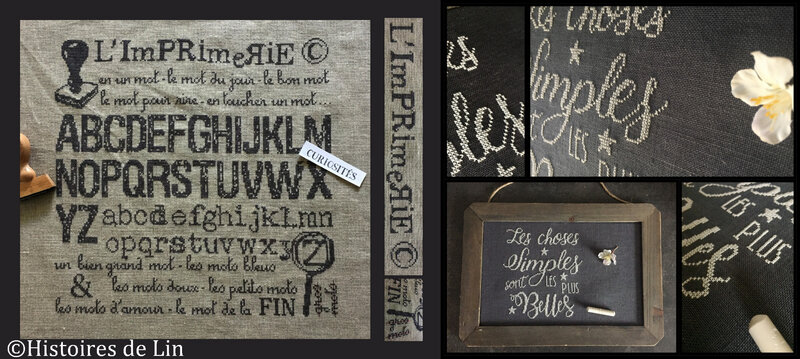 L'ImPRimeЯiE ©
en un mot - le mot du jour - le bon mot
le mot pour rire - en toucher un mot...
ABCDEFGHIJKLM
CURIOSITÉS
NOPQRSTUVWX
YZ abcdefghijklmn
opqrstuvwx y z
un bien grand mot - les mots bleus
& les mots doux - les petits mots
les mots d'amour - le mot de la FIN
gros mots
L'ImPRimeЯiE ©
FIN
gros mots
Simples
LES
Les choses
Simples
sont LES PLUS
Belles
LES PLUS
©Histoires de Lin